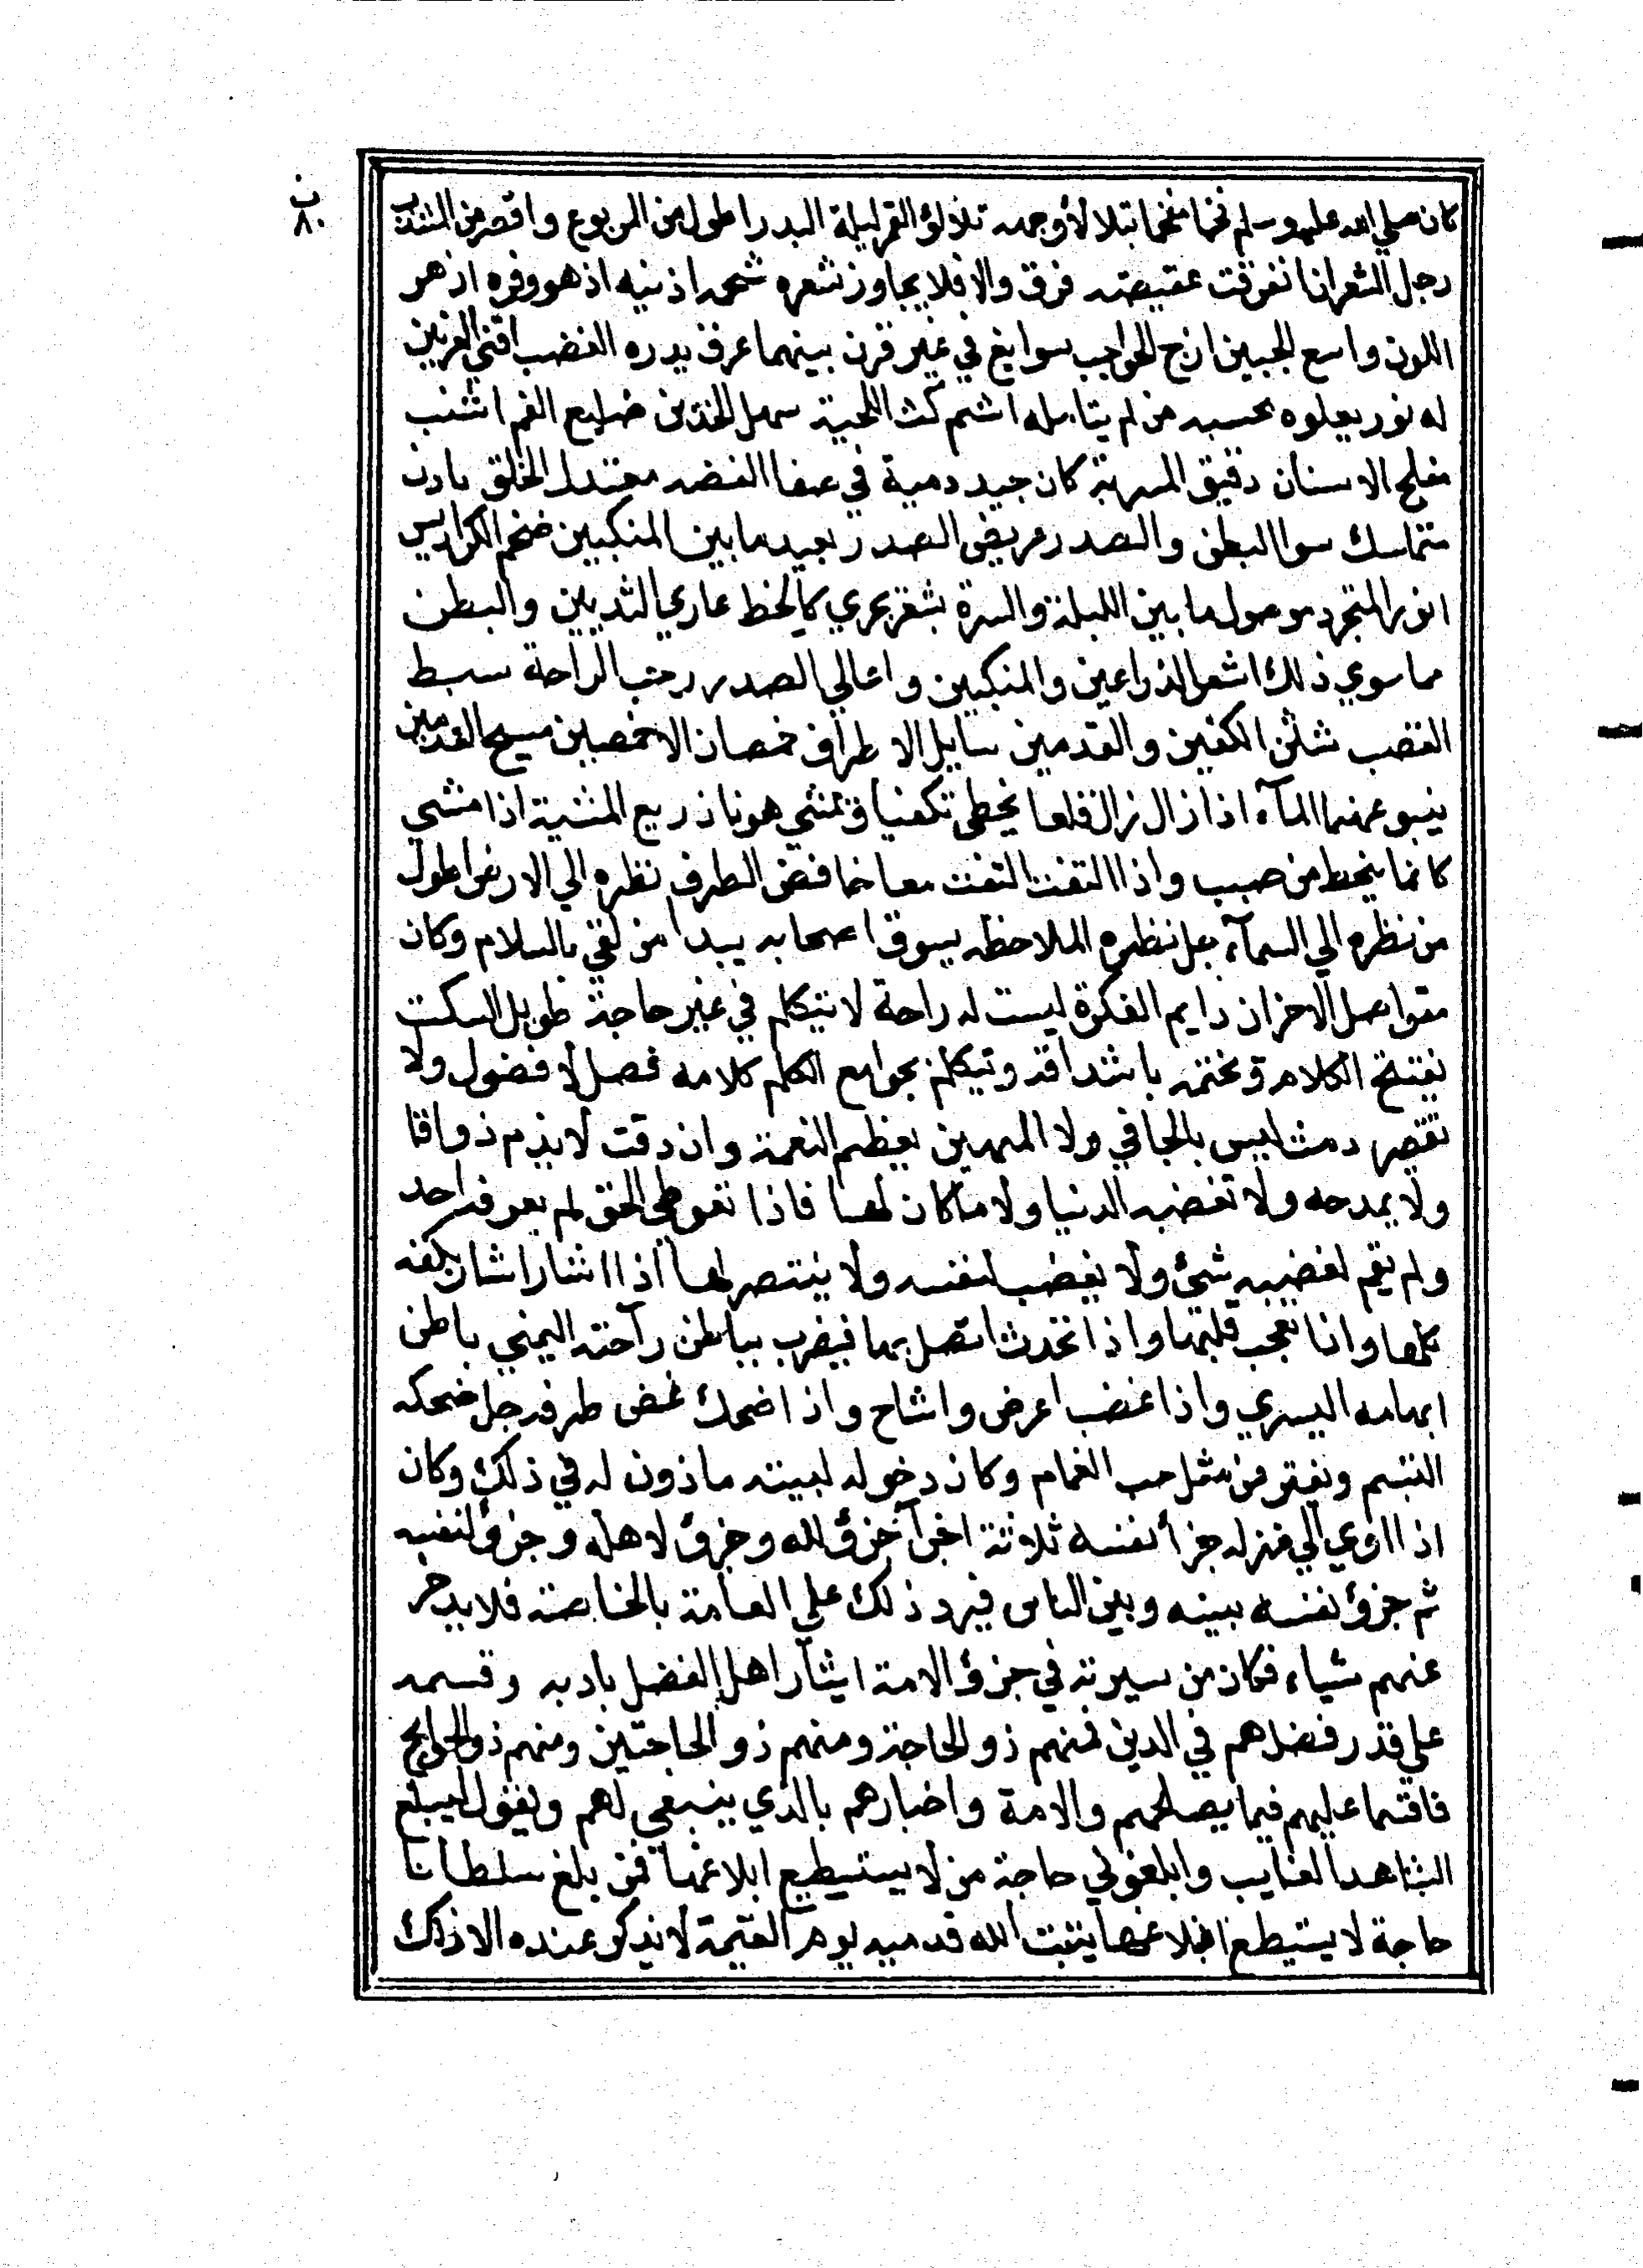 ب
٨٠
كان صلي الله عليه وسلم فخما مفخما يتلا لأوجهه تلالؤ القمر ليلة البدر اطول من المربوع واقصر من المشذب
رجل الشعر انا نفرقت عقيصته فرق والا فلا يجاوز شعره شحمه اذنيه اذ هو وفره ازهر
اللون واسع الجبين ازج الحواجب سوابغ في غير قرن بينهما عرق يدره الغضب اقني العرنين
له نور يعلوه يحسبه من لم يتامله اشم كث اللحية سهل الخدين ضليع الفم اشنب
مفلج الاسنان دقيق المسربة كان جيد دمية في صفا الفضه معتدل الخلق بادن
متماسك سوا البطن والصدر عريض الصدر بعيد ما بين المنكبين ضخم الكراديس
انور المتجرد موصول ما بين اللبلة والسرة بشعر يجري كالخط عاري الثديين والبطن
مما سوي ذلك اشعر الذراعين والمنكبين واعالي الصدر رحب الراحة سبط
القصب شثن الكفين والقدمين سايل الاطراف خمصان الاخمصين مسيح القدمين
ينبو عنهما المآء اذا زال زال قلعا يخطي تكفيا وتمشي هونا ذريع المشية اذا مشي
كانما ينحط من صبب واذا التفت التفت معا خافض الطرف نظره الي الارض اطول
من نظره الي السمآء جل نظره الملاحظه يسوق اصحابه يبدا من لقي بالسلام وكان
متواصل الاحزان دايم الفكرة ليست له راحة لا يتكلم في غير حاجة طويل السكت
يفتتح الكلام ويختمه باشداقه ويتكلم بجوامع الكلم كلامه فصل لا فضول ولا
تقصر دمث ليس بالجافي ولا المهين يعظم النعمة وان دقت لا يذم ذواقا
ولا يمدحه ولا تغضبه الدنيا ولا ما كان لها فاذا تعوطي الحق لم يعرفه احد
ولم يقم لغضبه شئ ولا يغضب لنفسه ولا ينتصر لها اذا اشار اشار بكفه
كلها وانا تعجب قلبها واذا تحدث اتصل بها فيضرب بباطن رآحته اليمني باطن
ابهامه اليسري واذا غضب اعرض واشاح واذا ضحك غض طرفه جل ضحكه
التبسم ويفتر عن مثل حب الغمام وكان دخوله لبيته ماذون له في ذلك وكان
اذا اوي الي منزله جزأ نفسه ثلاثة اجزآ جزؤ لله وجزؤ لاهله وجزؤ لنفسه
ثم جزؤ نفسه بينه وبين الناس فيرد ذلك علي العامة بالخاصة فلا يدخر
عنهم شياء فكان من سيرته في جزؤ الامة ايثار اهل الفضل بادبه وقسمه
علي قدر فضلهم في الدين فمنهم ذو الحاجة ومنهم ذو الحاجتين ومنهم ذو الحوايج
فيما يصلحهم والامة واخبارهم بالذي ينبغي لهم ويقول ليبلغ
الشاهد الغايب وابلغوني حاجة من لا يستطيع ابلاغها فمن بلغ سلطانا
حاجة لا يستطيع ابلاغها يثبت الله قدميه يوم القيمة لا يذكر عنده الا ذلك